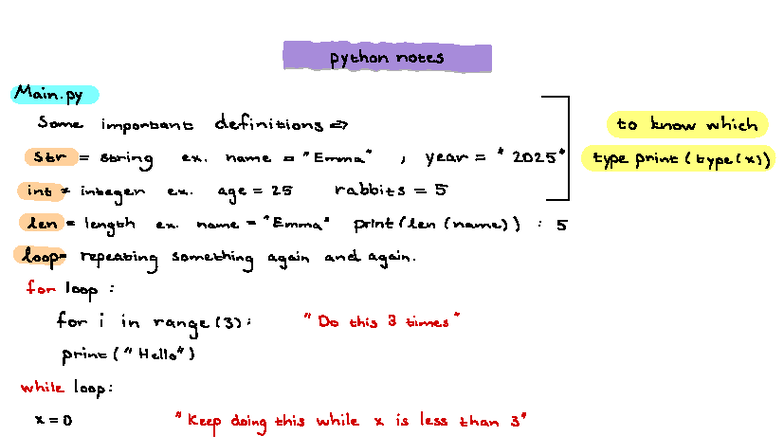 python notes
Main.py
Some important definitions =>
str = string ex. name = "Emma" , year = "2025"
to know which
type print(type(x))
int = integer ex. age = 25 rabbits = 5
len = length ex. name = "Emma" print(len(name)) : 5
loop= repeating something again and again.
for loop :
for i in range(3): "Do this 3 times"
print("Hello")
while loop:
x = 0 "Keep doing this while x is less than 3"